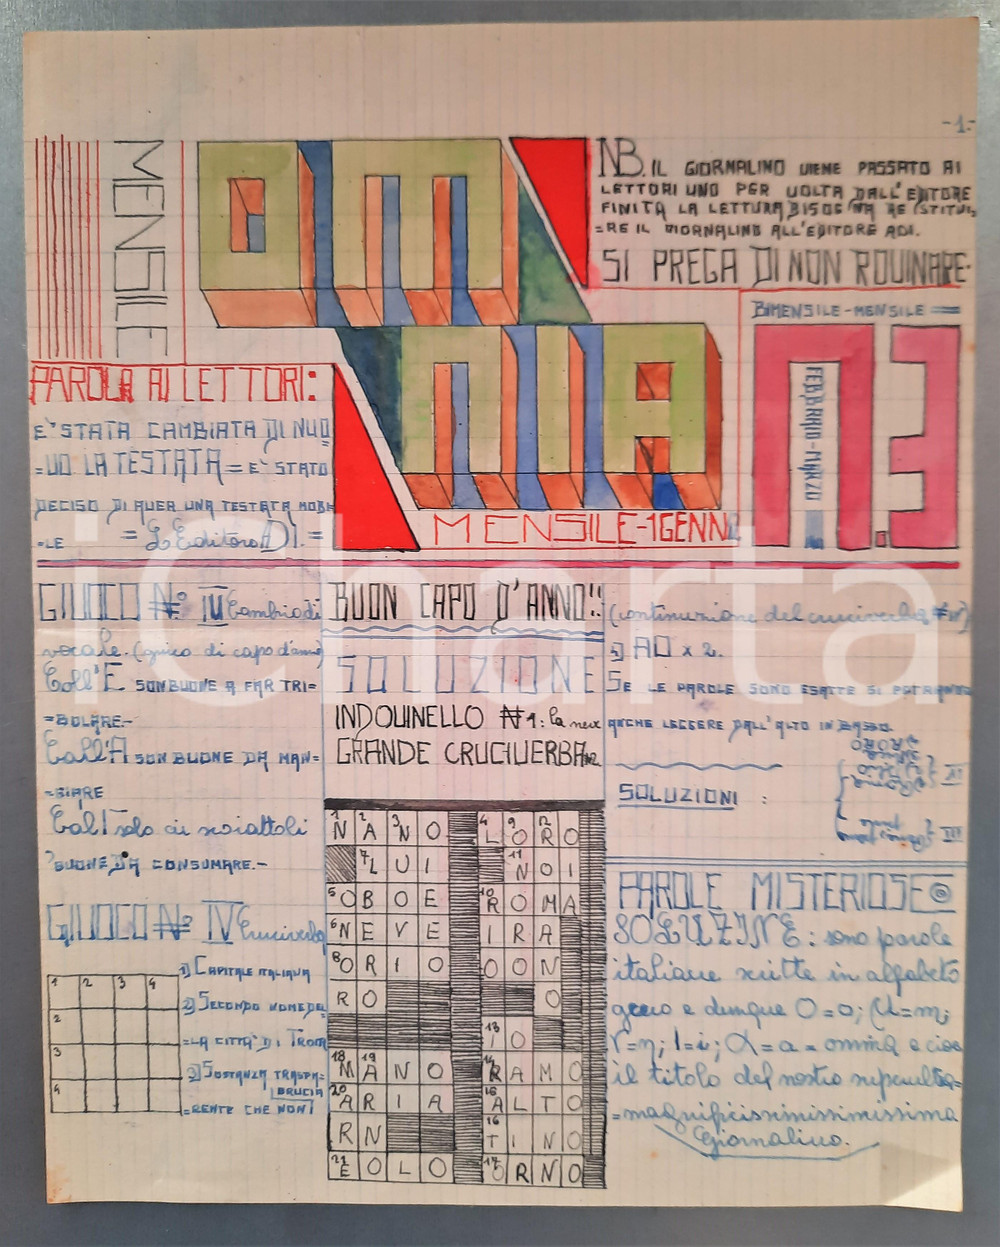 -1-
MENSILE
OMNIA
NB. IL GIORNALINO VIENE PASSATO AI
LETTORI UNO PER VOLTA DALL'EDITORE
FINITA LA LETTURA BISOGNA RESTITUI=
=RE IL GIORNALINO ALL'EDITORE ADI.
SI PREGA DI NON ROVINARE.
BIMENSILE-MENSILE
N.3
FEBBRAIO-MARZO
MENSILE-1GENN
PAROLA AI LETTORI:
E' STATA CAMBIATA DI NUO
=VO LA TESTATA = E' STATO
DECISO DI AVER UNA TESTATA MOBI
=LE = L'Editore ADI.=
GIUOCO Nº IV Cambio di
vocale. (gioco di capo d'anno)
Coll'E SON BUONE A FAR TRI=
=BOLARE.-
Coll'A SON BUONE DA MAN=
=GIARE
Coll'I solo di scoiattoli
BUONE DA CONSUMARE.-
GIUOCO Nº IV Cruciverba
1 2 3 4
2
3
4
1) CAPITALE ITALIANA
2) SECONDO NOME DE
=LA CITTA' DI TROIA
3) SOSTANZA TRASPA=
BRUCIA
=RENTE CHE NON
BUON CAPO D'ANNO!!
SOLUZIONE
INDOVINELLO Nº1: la neve
GRANDE CRUCIVERBA
1N 2A 3N O 4L 9O 12R O
7L U I 11N O I
5O B O E 10R O M A
6N E V E I R A
8O R I O O O N
R O O
13I O
18M 19A N O 14R A M O
20A R I A 15A L T O
R N 16T I N O
21E O L O 17O R N O
(continuzione del cruciverba
4) AO x 2.
SE LE PAROLE SONO ESATTE SI POTRANNO
ANCHE LEGGERE DALL'ALTO IN BASSO.
SOLUZIONI :
VI
III
PAROLE MISTERIOSE
SOLUZINE: sono parole
italiane scritte in alfabeto
greco e dunque O=o; M=m;
V=n; I=i; α=a = omnia e cioè
il titolo del nostro
=magnificissimissimissima
Giornalino.
icharta